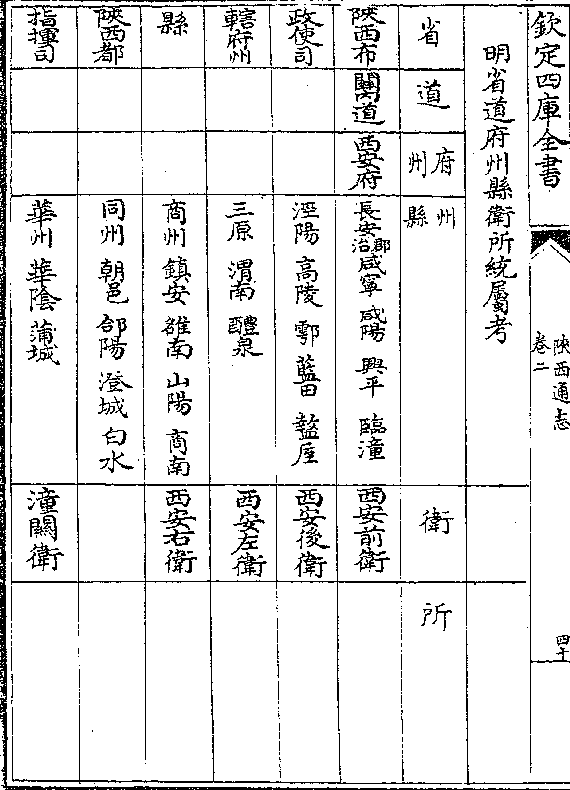 欽定四庫全書
陝西通志
卷二
四十
明省道府州縣衛所統屬考
省 道 府州 州縣 衛 所
陝西布 關道 西安府 長安郡治 咸寧 咸陽 興平 臨潼 西安前衛
政使司 涇陽 高陵 鄠 藍田 盩厔 西安後衛
轄府州 三原 渭南 醴泉 西安左衛
縣 商州 鎮安 雒南 山陽 商南 西安右衛
陝西都 同州 朝邑 郃陽 澄城 白水
指揮司 華州 華陰 蒲城 潼關衛